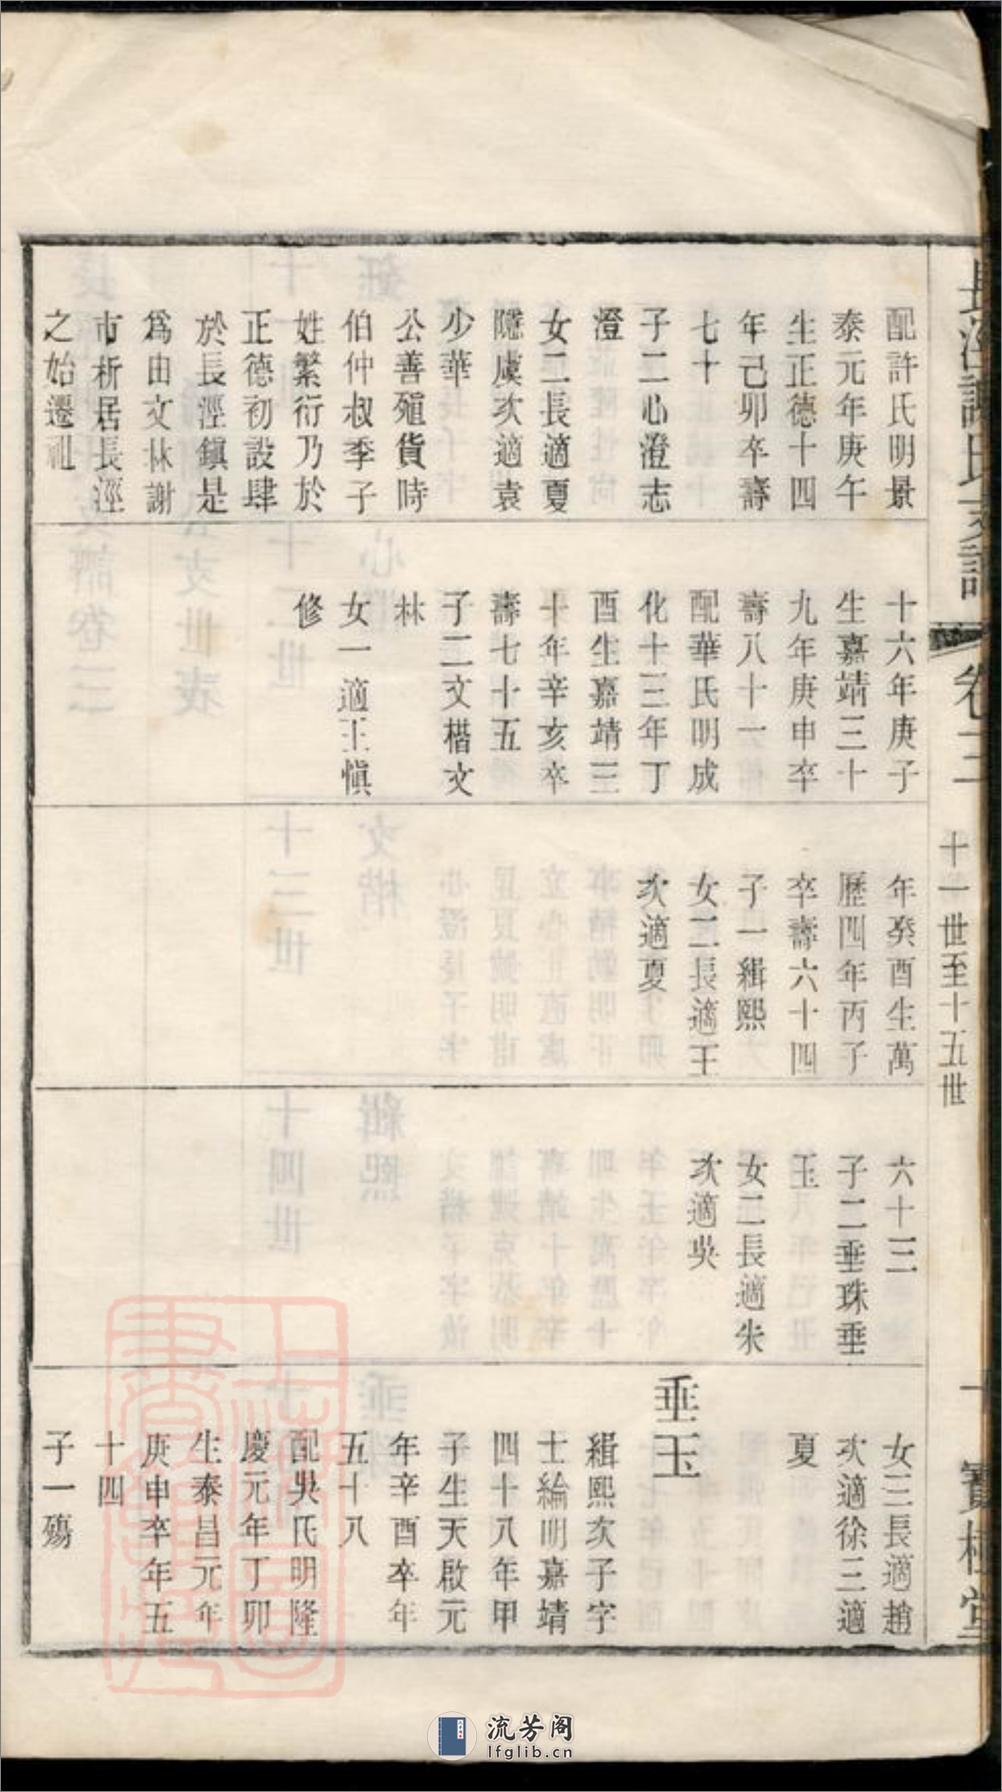 長涇謝氏支譜
卷二
十一世至十五世
一
寶樹堂
配許氏明景
泰元年庚午
生正德十四
年己卯卒壽
七十
子二心澄志
澄
女二長適夏
隱虞次適袁
少華
公善殖貨時
伯仲叔季子
姓繁衍乃於
正德初設肆
於長涇鎮是
為由文林謝
市析居長涇
之始遷祖
十六年庚子
生嘉靖三十
九年庚申卒
壽八十一
配華氏明成
化十三年丁
酉生嘉靖三
十年辛亥卒
壽七十五
子二文楷文
林
女一適王慎
修
年癸酉生萬
歷四年丙子
卒壽六十四
子一緝熙
女二長適王
次適夏
六十三
子二垂珠垂
玉
女二長適朱
次適吳
女三長適趙
次適徐三適
夏
垂玉
緝熙次子字
士綸明嘉靖
四十八年甲
子生天啟元
年辛酉卒年
五十八
配吳氏明隆
慶元年丁卯
生泰昌元年
庚申卒年五
十四
子一殤
流芳阁
lfglib.cn